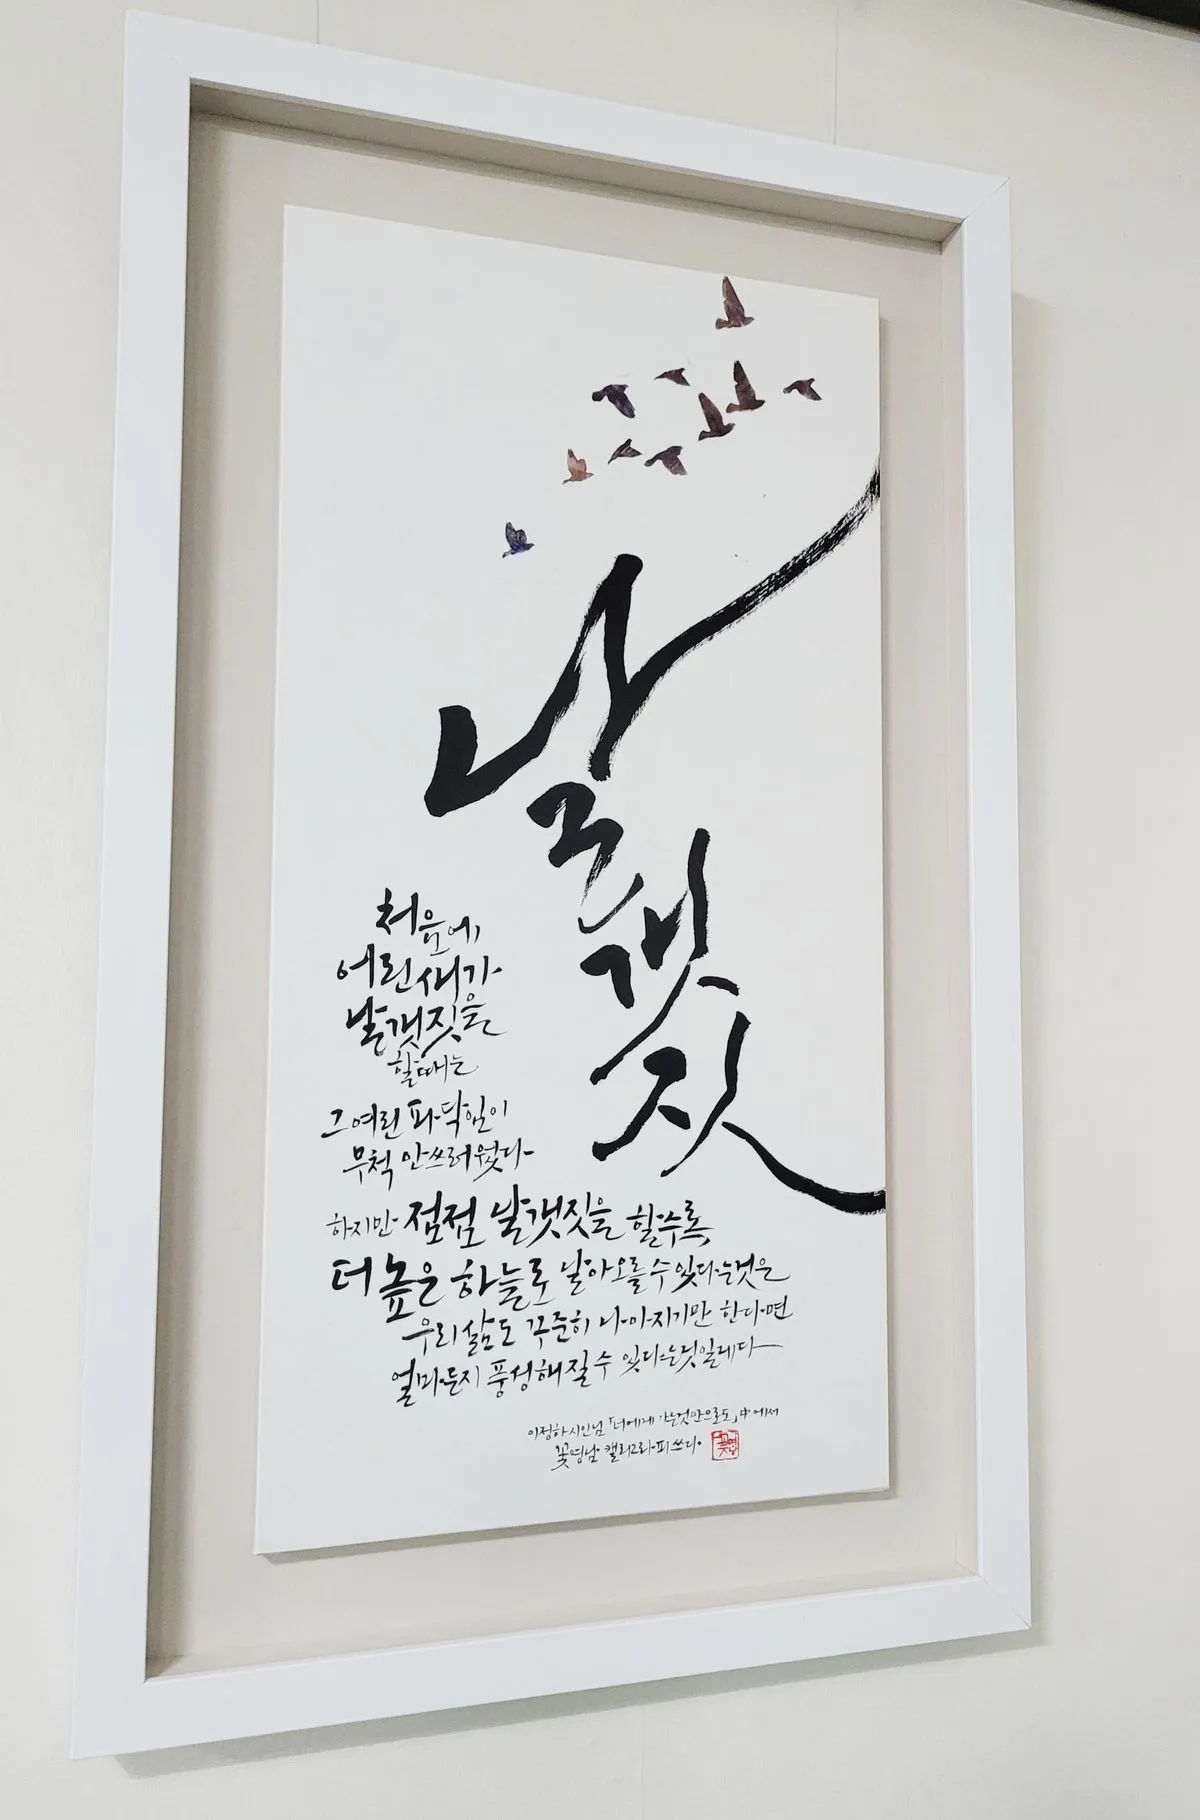 날갯짓
처음에,
어린새가
날갯짓을
할때는
그 여린 파닥임이
무척 안쓰러웠다
하지만 점점 날갯짓을 할수록,
더 높은 하늘로 날아오를 수 있다는것은
우리 삶도 꾸준히 나아지기만 한다면
얼마든지 풍성해질 수 있다는 뜻일레다
이정하 시인님 「너에게 가는것만으로도」 中에서
꽃영남 캘리그라피 쓰다.